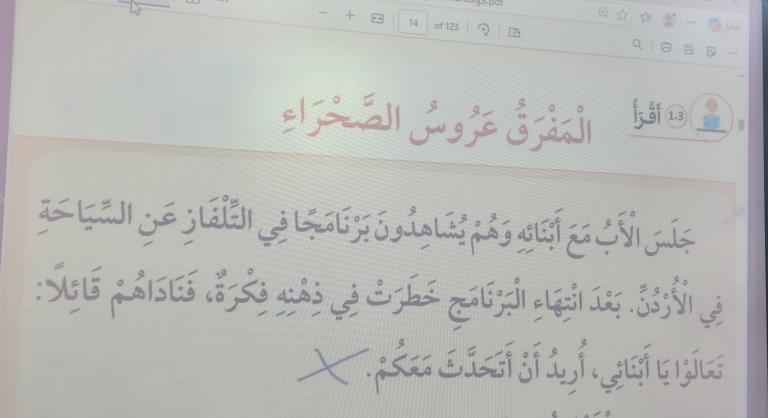 14 of 123
Chat
1.3 أَقْرَأُ
الْمَفْرَقُ عَرُوسُ الصَّحْرَاءِ
جَلَسَ الْأَبُ مَعَ أَبْنَائِهِ وَهُمْ يُشَاهِدُونَ بَرْنَامَجًا فِي التِّلْفَازِ عَنِ السِّيَاحَةِ
فِي الْأُرْدُنِّ. بَعْدَ انْتِهَاءِ الْبَرْنَامَجِ خَطَرَتْ فِي ذِهْنِهِ فِكْرَةٌ، فَنَادَاهُمْ قَائِلًا:
تَعَالَوْا يَا أَبْنَائِي، أُرِيدُ أَنْ أَتَحَدَّثَ مَعَكُمْ.